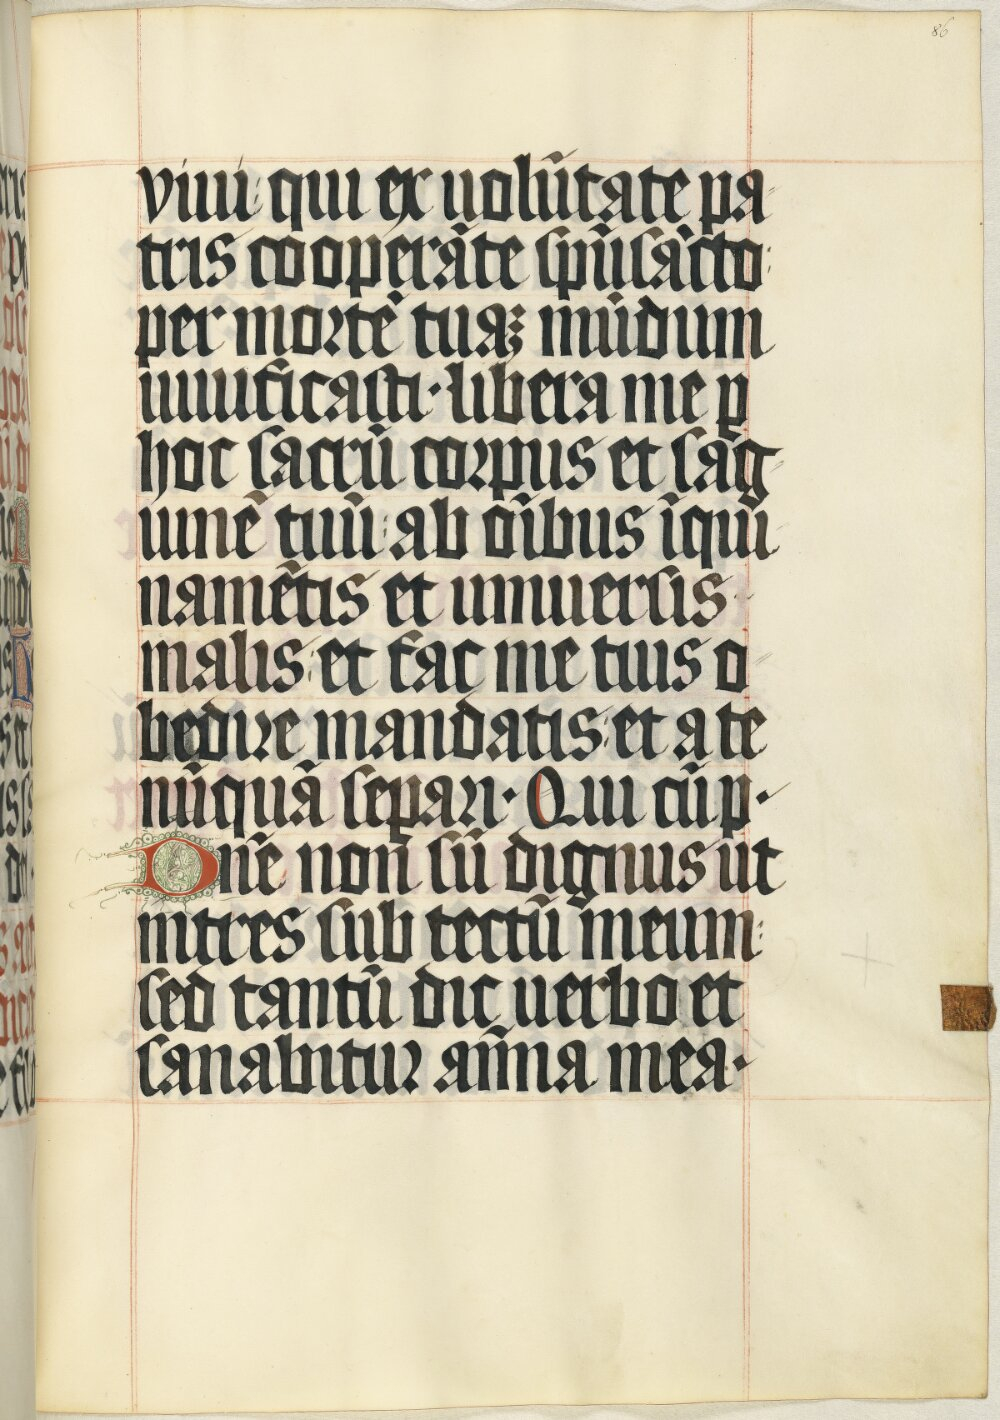 86
viui: qui ex uolūtate pa
tris cooperāte spūsācto:
per mortē tuaꝫ mūdum
uiuificasti· libera me p
hoc sacrū corpus et sāg
uinē tuū: ab oībus iqui
namētis et uniuersis
malis: et fac me tuis o
bedire mandatis: et a te
nūquā separi· Qui cū p·
Dn̄e non sū dignus ut
intres sub tectū meum:
sed tantū dic uerbo et
sanabitur an̄ia mea·